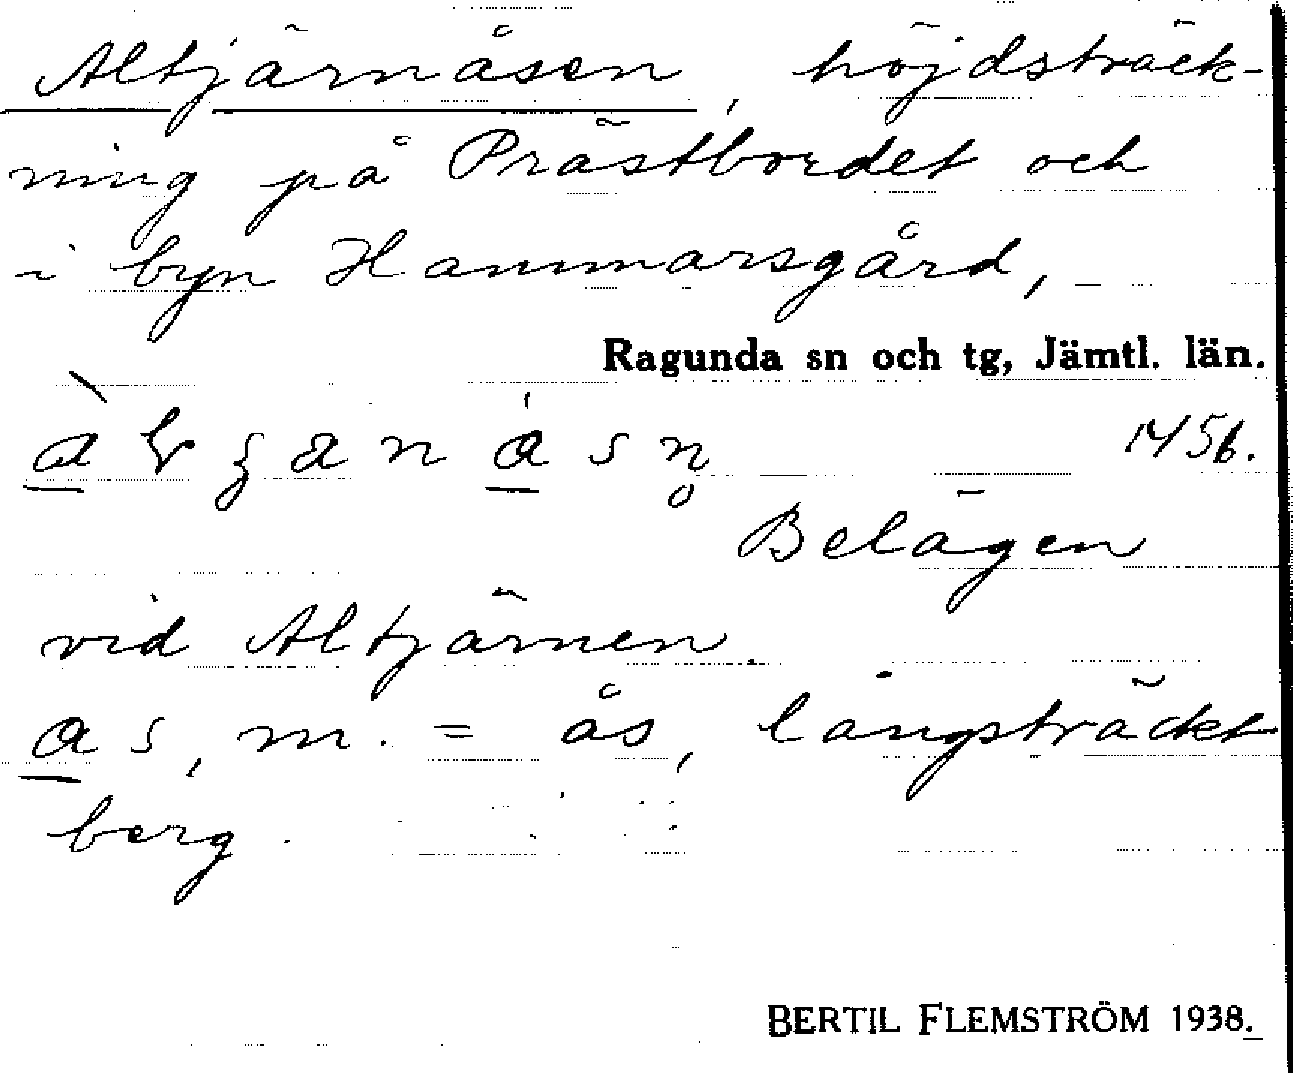 Altjärnåsen, höjdsträck-
ning på Prästbordet och
i byn Hammarsgård,
Ragunda sn och tg, Jämtl. län.
1456.
Belägen
vid Altjärnen.
as, m. = ås, långsträckt
berg.
BERTIL FLEMSTRÖM 1938.